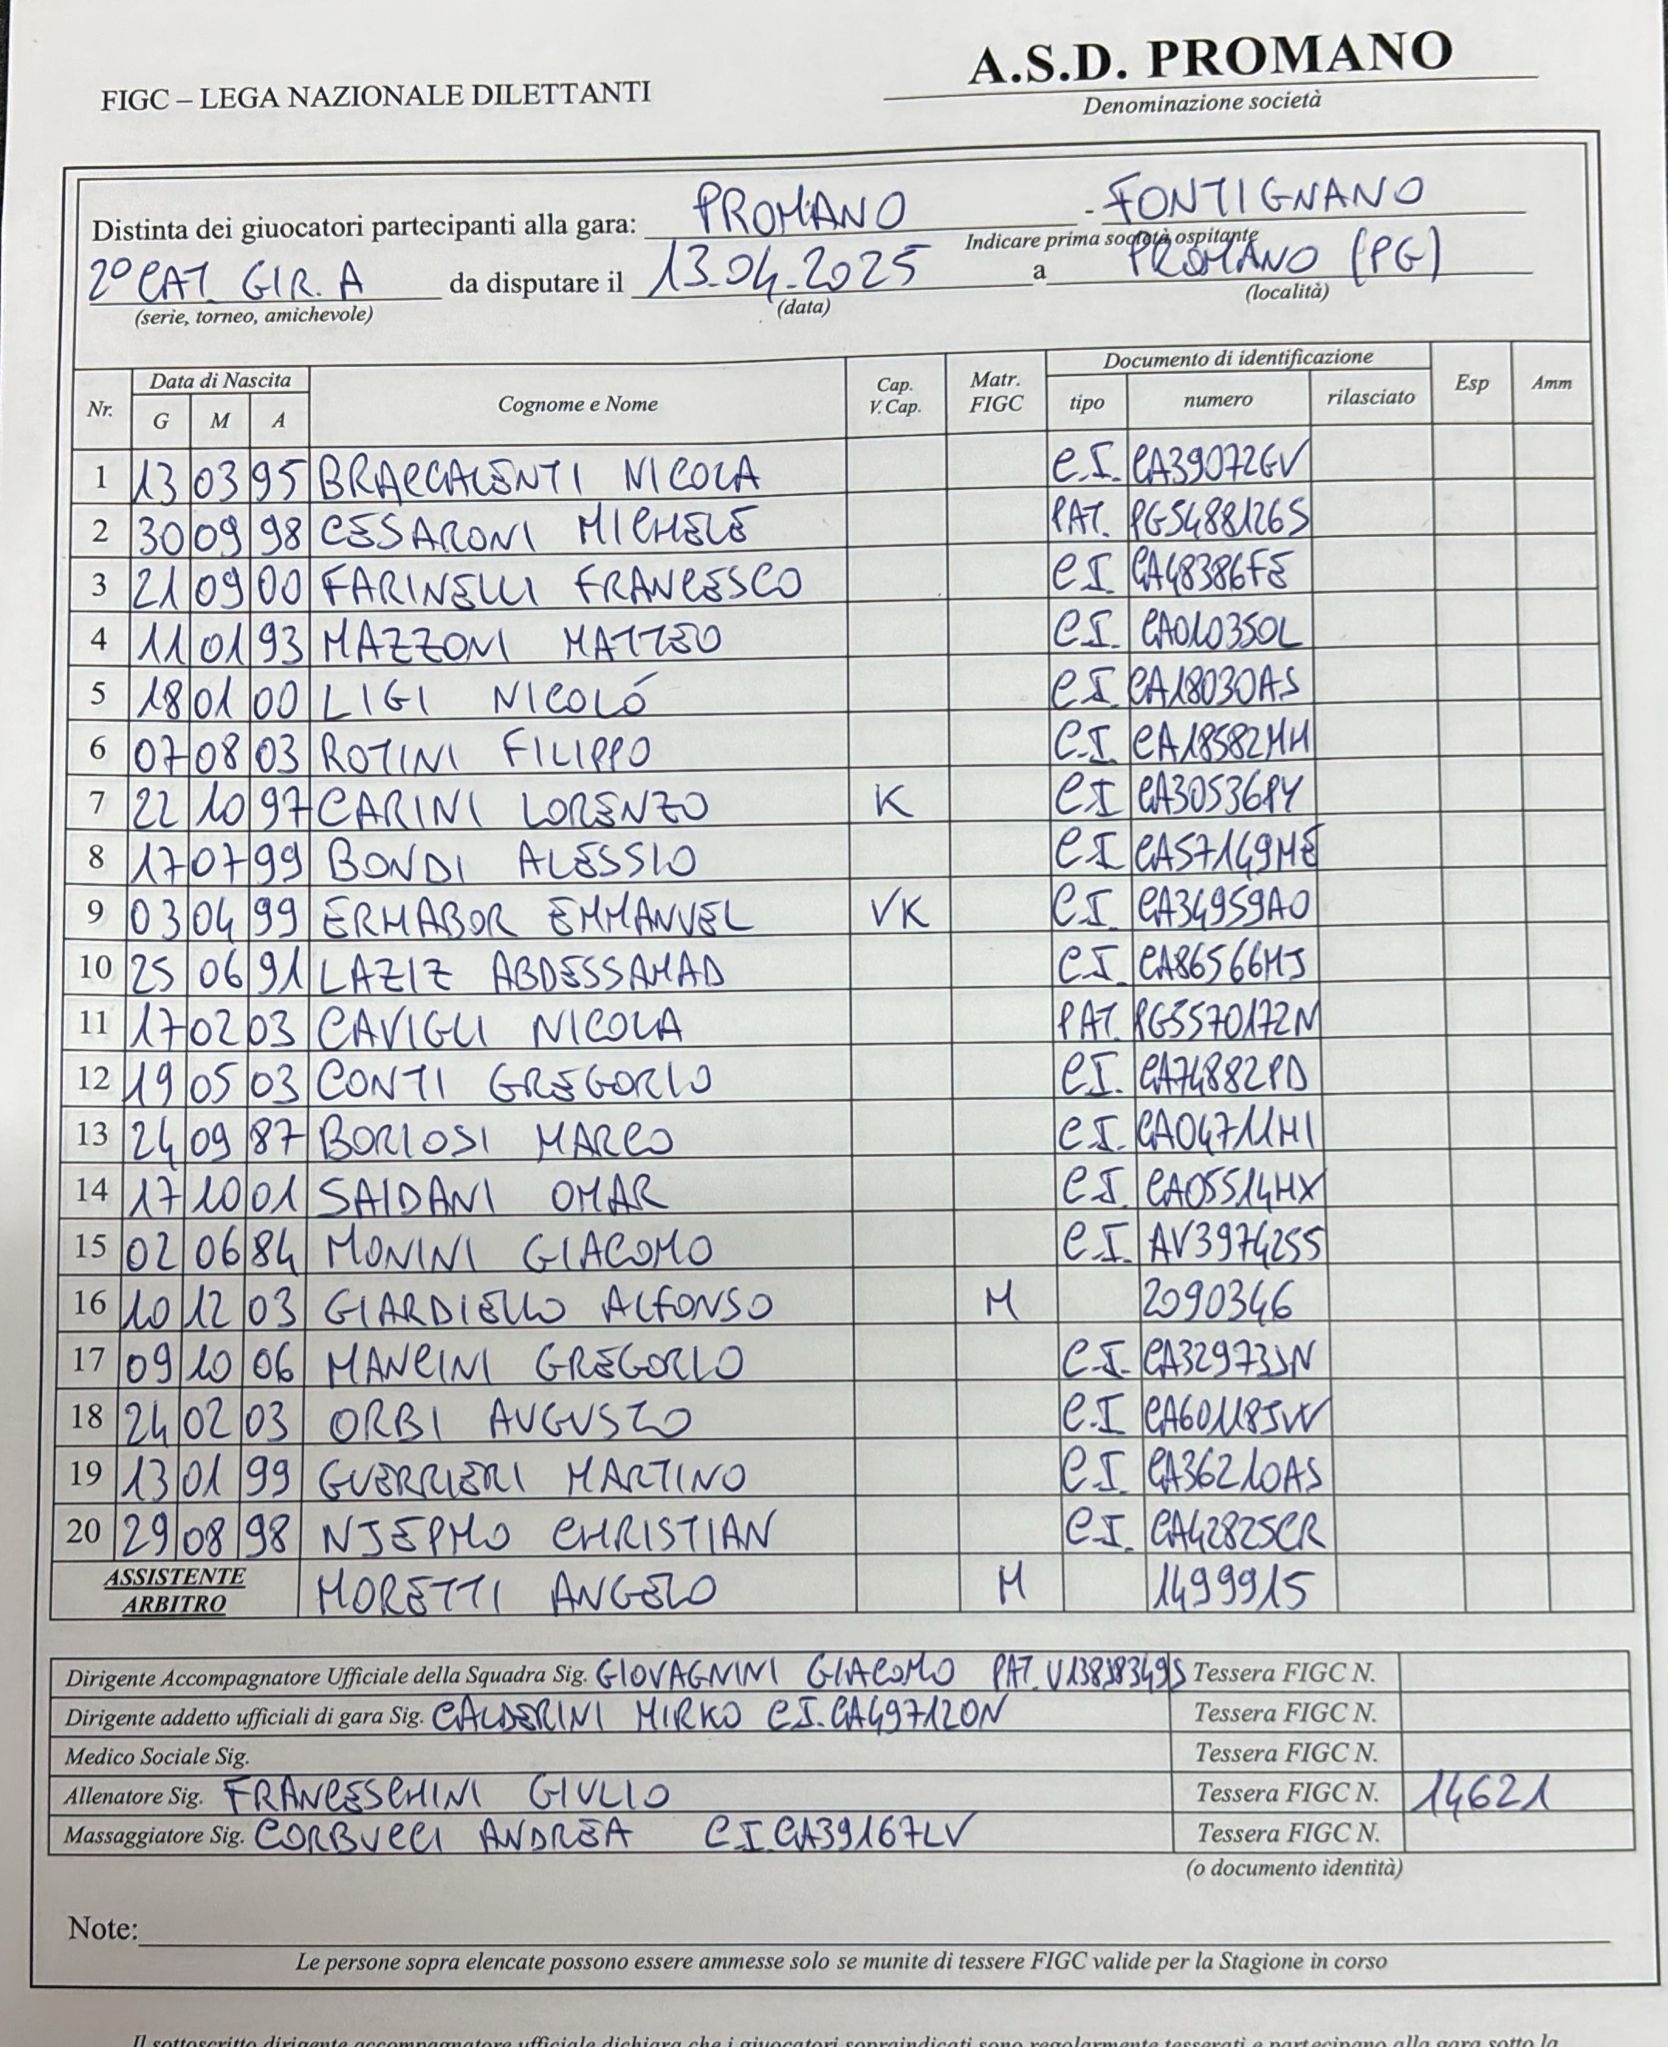 A.S.D. PROMANO
FIGC – LEGA NAZIONALE DILETTANTI
Denominazione società
Distinta dei giuocatori partecipanti alla gara: PROMANO - FONTIGNANO
Indicare prima società ospitante
2° CAT. GIR. A da disputare il 13.04.2025 a PROMANO (PG)
(serie, torneo, amichevole) (data) (località)
Nr. Data di Nascita Cognome e Nome Cap. V. Cap. Matr. FIGC Documento di identificazione Esp Amm
G M A tipo numero rilasciato
1 13 03 95 BRACCALENTI NICOLA C.I. CA39072GV
2 30 09 98 CESARONI MICHELE PAT. PG5488126S
3 21 09 00 FARINELLI FRANCESCO C.I. CA48386FE
4 11 01 93 MAZZONI MATTEO C.I. CA01035OL
5 18 01 00 LIGI NICOLÓ C.I. CA18030AS
6 07 08 03 ROTINI FILIPPO C.I. CA18582MH
7 22 10 97 CARINI LORENZO K C.I CA30536PY
8 17 07 99 BONDI ALESSIO C.I CA57149ME
9 03 04 99 ERHABOR EMMANUEL VK C.I. CA34959AO
10 25 06 91 LAZIZ ABDESSAMAD C.I. CA86566MJ
11 17 02 03 CAVIGLI NICOLA PAT. PG5570172N
12 19 05 03 CONTI GREGORIO C.I. CA74882PD
13 24 09 87 BORIOSI MARCO C.I. CA04711HI
14 17 10 01 SAIDANI OMAR C.I. CA05514HX
15 02 06 84 MONINI GIACOMO C.I. AV3974255
16 10 12 03 GIARDIELLO ALFONSO M 2090346
17 09 10 06 MANCINI GREGORIO C.I. CA32973JN
18 24 02 03 ORBI AUGUSTO C.I CA60118JW
19 13 01 99 GUERRIERI MARTINO C.I. CA36210AS
20 29 08 98 NJEPMO CHRISTIAN C.I. CA42825CR
ASSISTENTE ARBITRO MORETTI ANGELO M 1499915
Dirigente Accompagnatore Ufficiale della Squadra Sig. GIOVAGNINI GIACOMO PAT. Tessera FIGC N.
Dirigente addetto ufficiali di gara Sig. CALDERINI MIRKO C.I. CA49712ON Tessera FIGC N.
Medico Sociale Sig. Tessera FIGC N.
Allenatore Sig. FRANCESCHINI GIULIO Tessera FIGC N. 14621
Massaggiatore Sig. CORBUCCI ANDREA C.I. CA39167LV Tessera FIGC N.
(o documento identità)
Note:
Le persone sopra elencate possono essere ammesse solo se munite di tessere FIGC valide per la Stagione in corso
Il sottoscritto dirigente accompagnatore ufficiale dichiara che i giuocatori sopraindicati sono regolarmente tesserati e partecipano alla gara sotto la